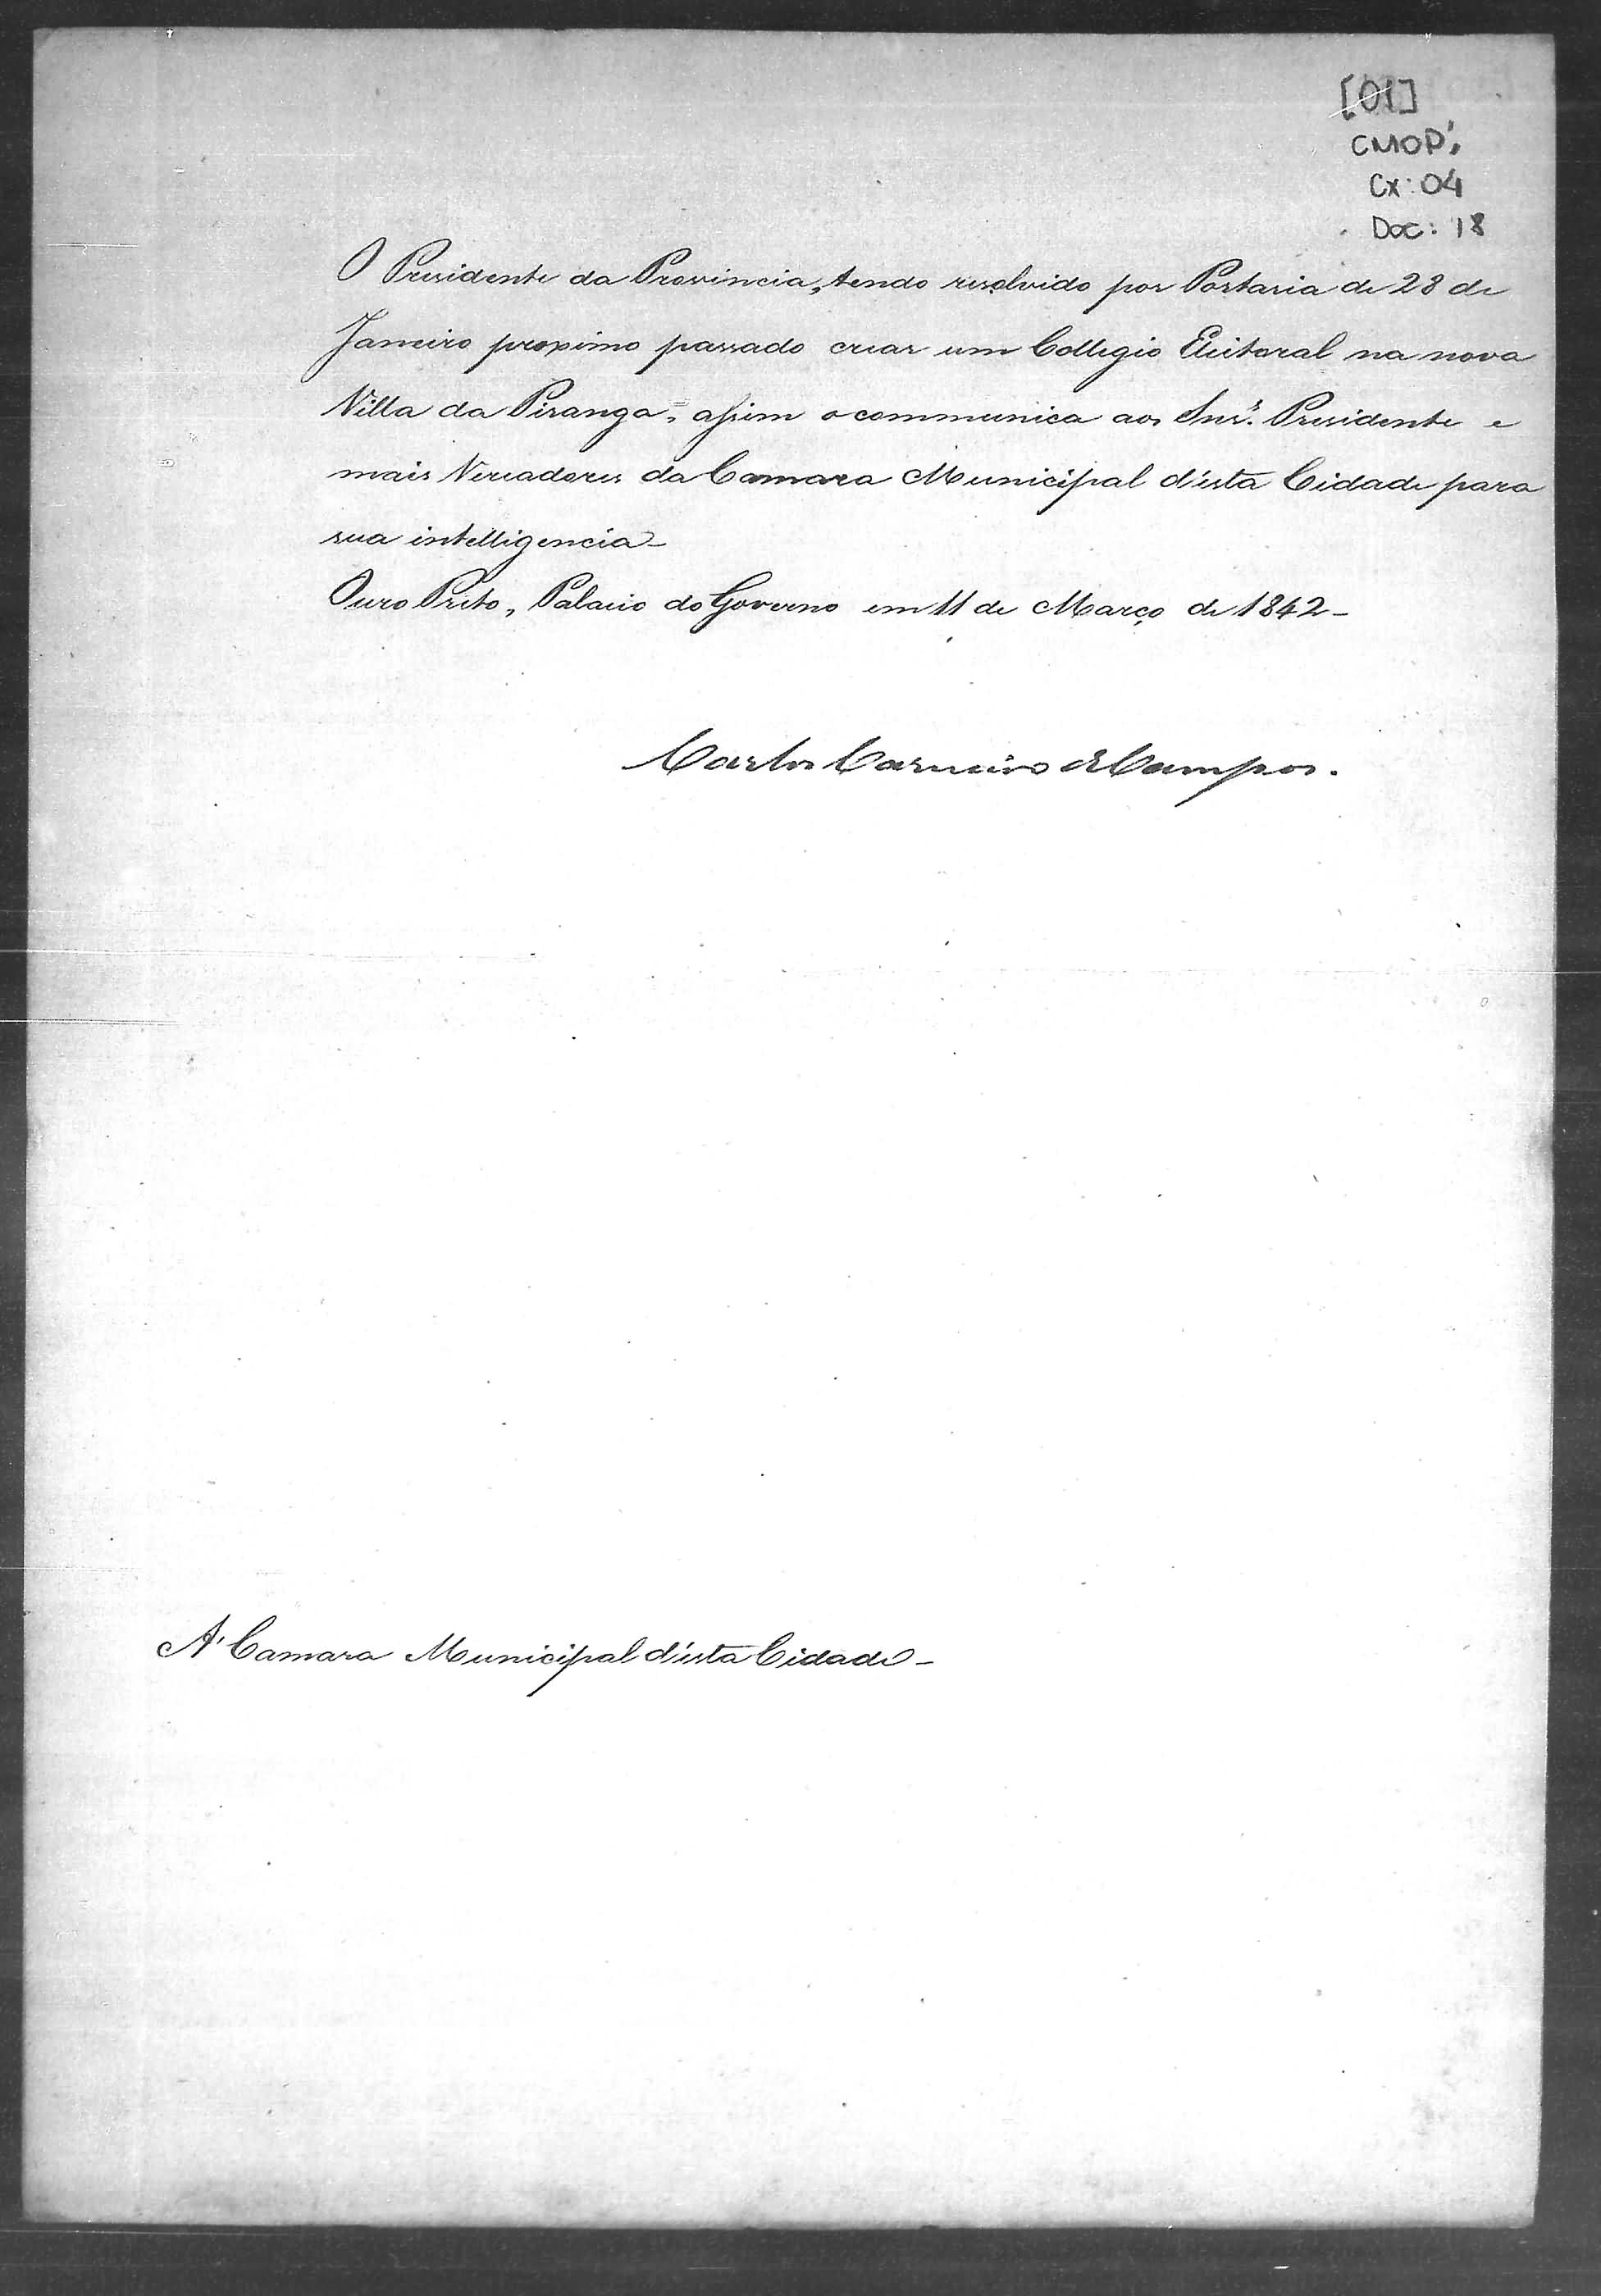 [01]
CMOP.
Cx: 04
Doc: 18
O Presidente da Provincia, tendo resolvido por Portaria de 28 de
Janeiro proximo passado crear um Collegio Eleitoral na nova
Villa da Piranga, assim o communica aos Snr.s Presidente e
mais Vereadores da Camara Municipal d'esta Cidade para
sua intelligencia_
Ouro Preto, Palacio do Governo em 11 de Março de 1842_
Carlos Carneiro de Campos.
A' Camara Municipal d'esta Cidade_